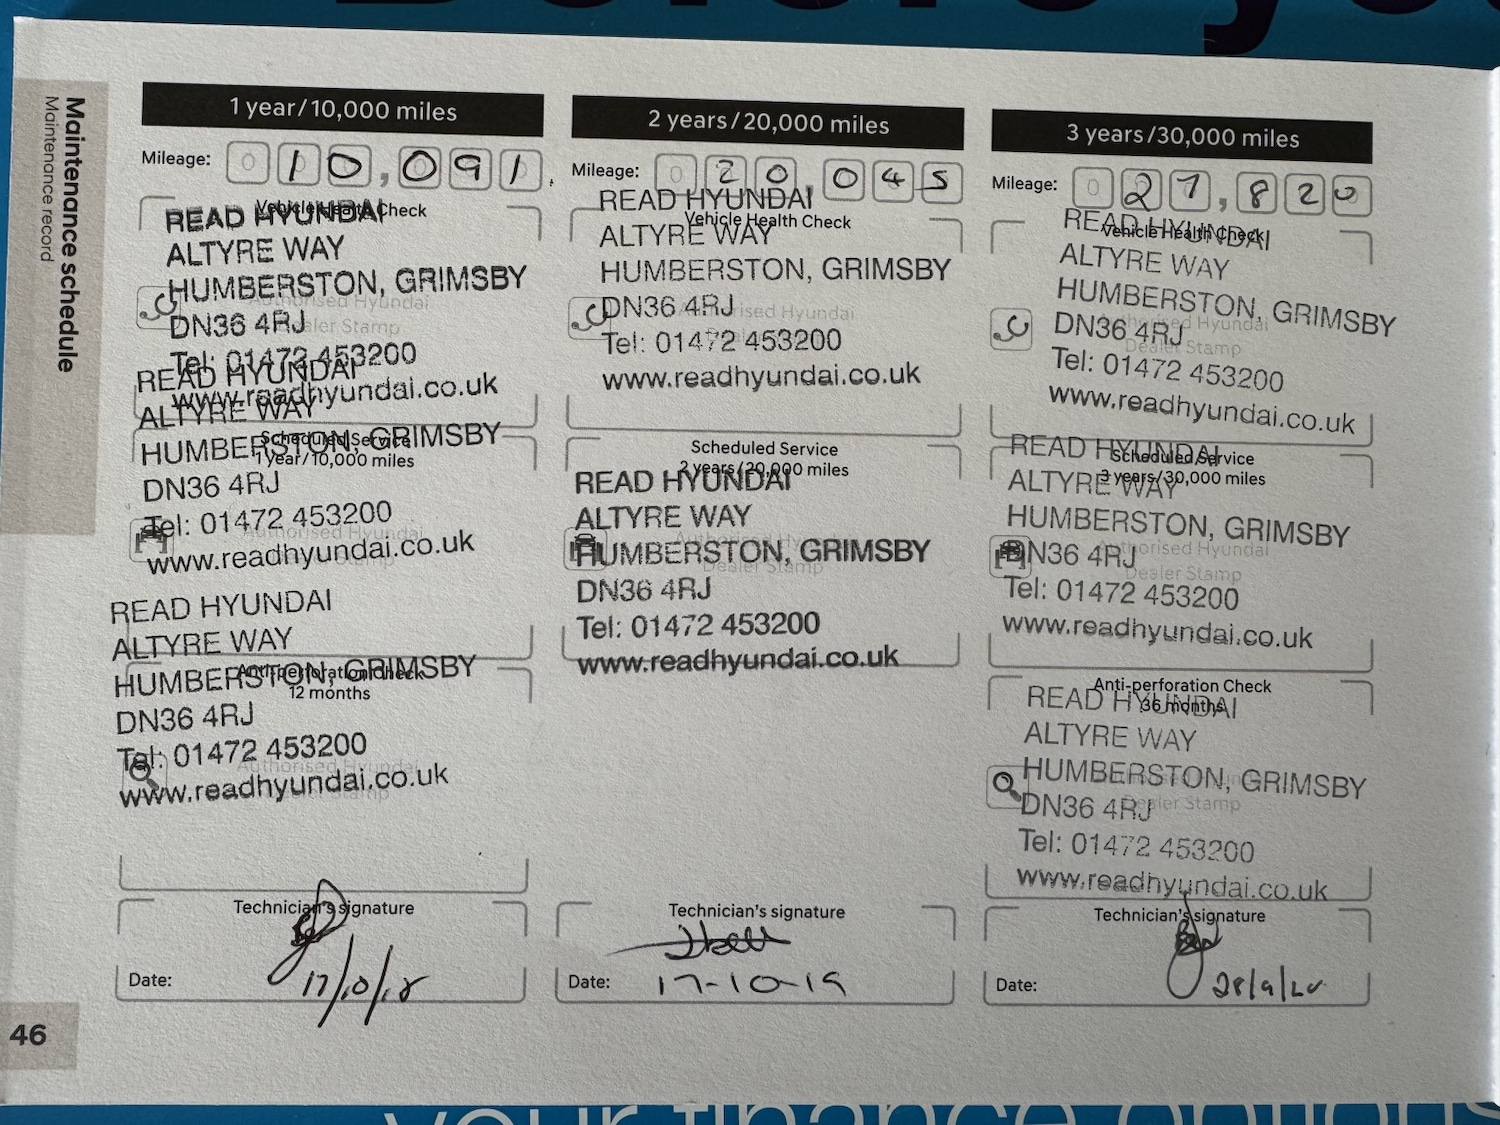 Maintenance schedule
Maintenance record
1 year/10,000 miles
Mileage: 010,091
Vehicle Health Check
READ HYUNDAI
ALTYRE WAY
HUMBERSTON, GRIMSBY
Authorised Hyundai
DN36 4RJ
Dealer Stamp
Tel: 01472 453200
www.readhyundai.co.uk
READ HYUNDAI
ALTYRE WAY
Scheduled Service
HUMBERSTON, GRIMSBY
1 year/10,000 miles
DN36 4RJ
Tel: 01472 453200
Authorised Hyundai
www.readhyundai.co.uk
READ HYUNDAI
ALTYRE WAY
Anti-perforation Check
HUMBERSTON, GRIMSBY
12 months
DN36 4RJ
Tel: 01472 453200
Authorised Hyundai
www.readhyundai.co.uk
Technician's signature
Date: 17/10/18
2 years/20,000 miles
Mileage: 020,045
READ HYUNDAI
Vehicle Health Check
ALTYRE WAY
HUMBERSTON, GRIMSBY
DN36 4RJ
Authorised Hyundai
Tel: 01472 453200
www.readhyundai.co.uk
Scheduled Service
2 years/20,000 miles
READ HYUNDAI
ALTYRE WAY
Authorised Hyundai
HUMBERSTON, GRIMSBY
Dealer Stamp
DN36 4RJ
Tel: 01472 453200
www.readhyundai.co.uk
Technician's signature
Date: 17-10-19
3 years/30,000 miles
Mileage: 027,820
READ HYUNDAI
Vehicle Health Check
ALTYRE WAY
HUMBERSTON, GRIMSBY
DN36 4RJ
Authorised Hyundai
Dealer Stamp
Tel: 01472 453200
www.readhyundai.co.uk
READ HYUNDAI
Scheduled Service
3 years/30,000 miles
ALTYRE WAY
HUMBERSTON, GRIMSBY
Authorised Hyundai
DN36 4RJ
Dealer Stamp
Tel: 01472 453200
www.readhyundai.co.uk
Anti-perforation Check
36 months
READ HYUNDAI
ALTYRE WAY
HUMBERSTON, GRIMSBY
DN36 4RJ
Dealer Stamp
Tel: 01472 453200
www.readhyundai.co.uk
Technician's signature
Date: 28/9/20
46
your finance options